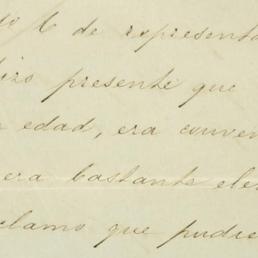 de representa
izo presente que
edad, era conven
era bastante ele
clamo que pudie